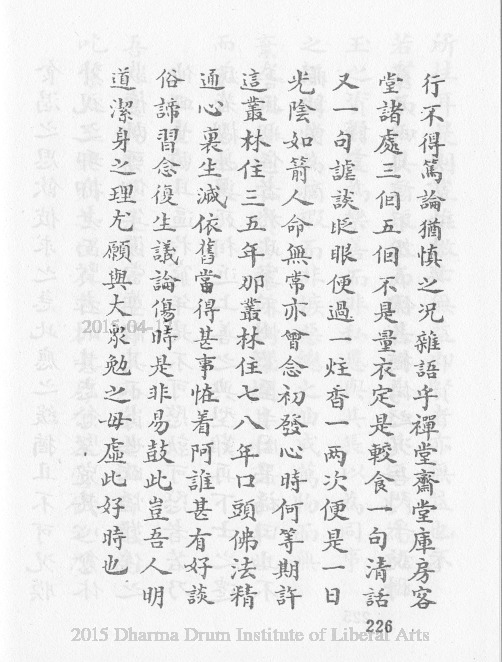 行不得篤論猶慎之况雜語乎禪堂齋堂庫房客
堂諸處三個五個不是量衣定是較食一句清話
又一句謔談眨眼便過一炷香一两次便是一日
光陰如箭人命無常亦曾念初發心時何等期許
這叢林住三五年那叢林住七八年口頭佛法精
通心裏生滅依舊當得甚事恠着阿誰甚有好談
俗諦習念復生議論傷時是非易鼓此豈吾人明
道潔身之理尤願與大衆勉之毋虛此好時也
226
2015-04-1
2015 Dharma Drum Institute of Liberal Arts